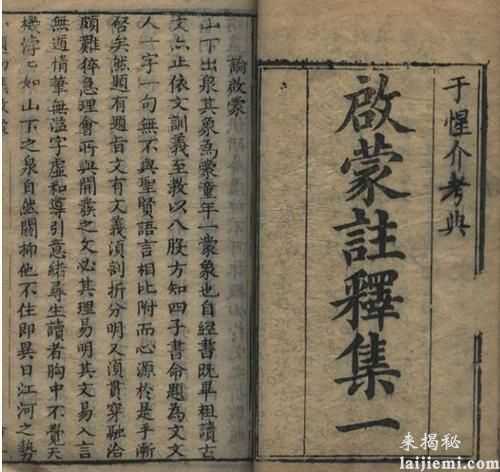 于惺介考典
啟蒙註釋集一
論啟蒙
山下出泉其象為蒙童年一蒙象也自經書既畢粗讀古
文亦止依文訓義至教以八股方知四子書命題為文文
人一字一句無不與聖賢語言相比附而心源於是乎漸
啟矣然題有題旨文有文義須剖析分明又須貫穿融洽
頗難猝急理會所與開發之文必其理易明其文易入言
無遁情筆無溢字虛和導引意緒尋生讀者胸中不覺天
機浡〻如山下之泉自然關抑他不住即異日江河之勢
来揭秘
laijiemi.com